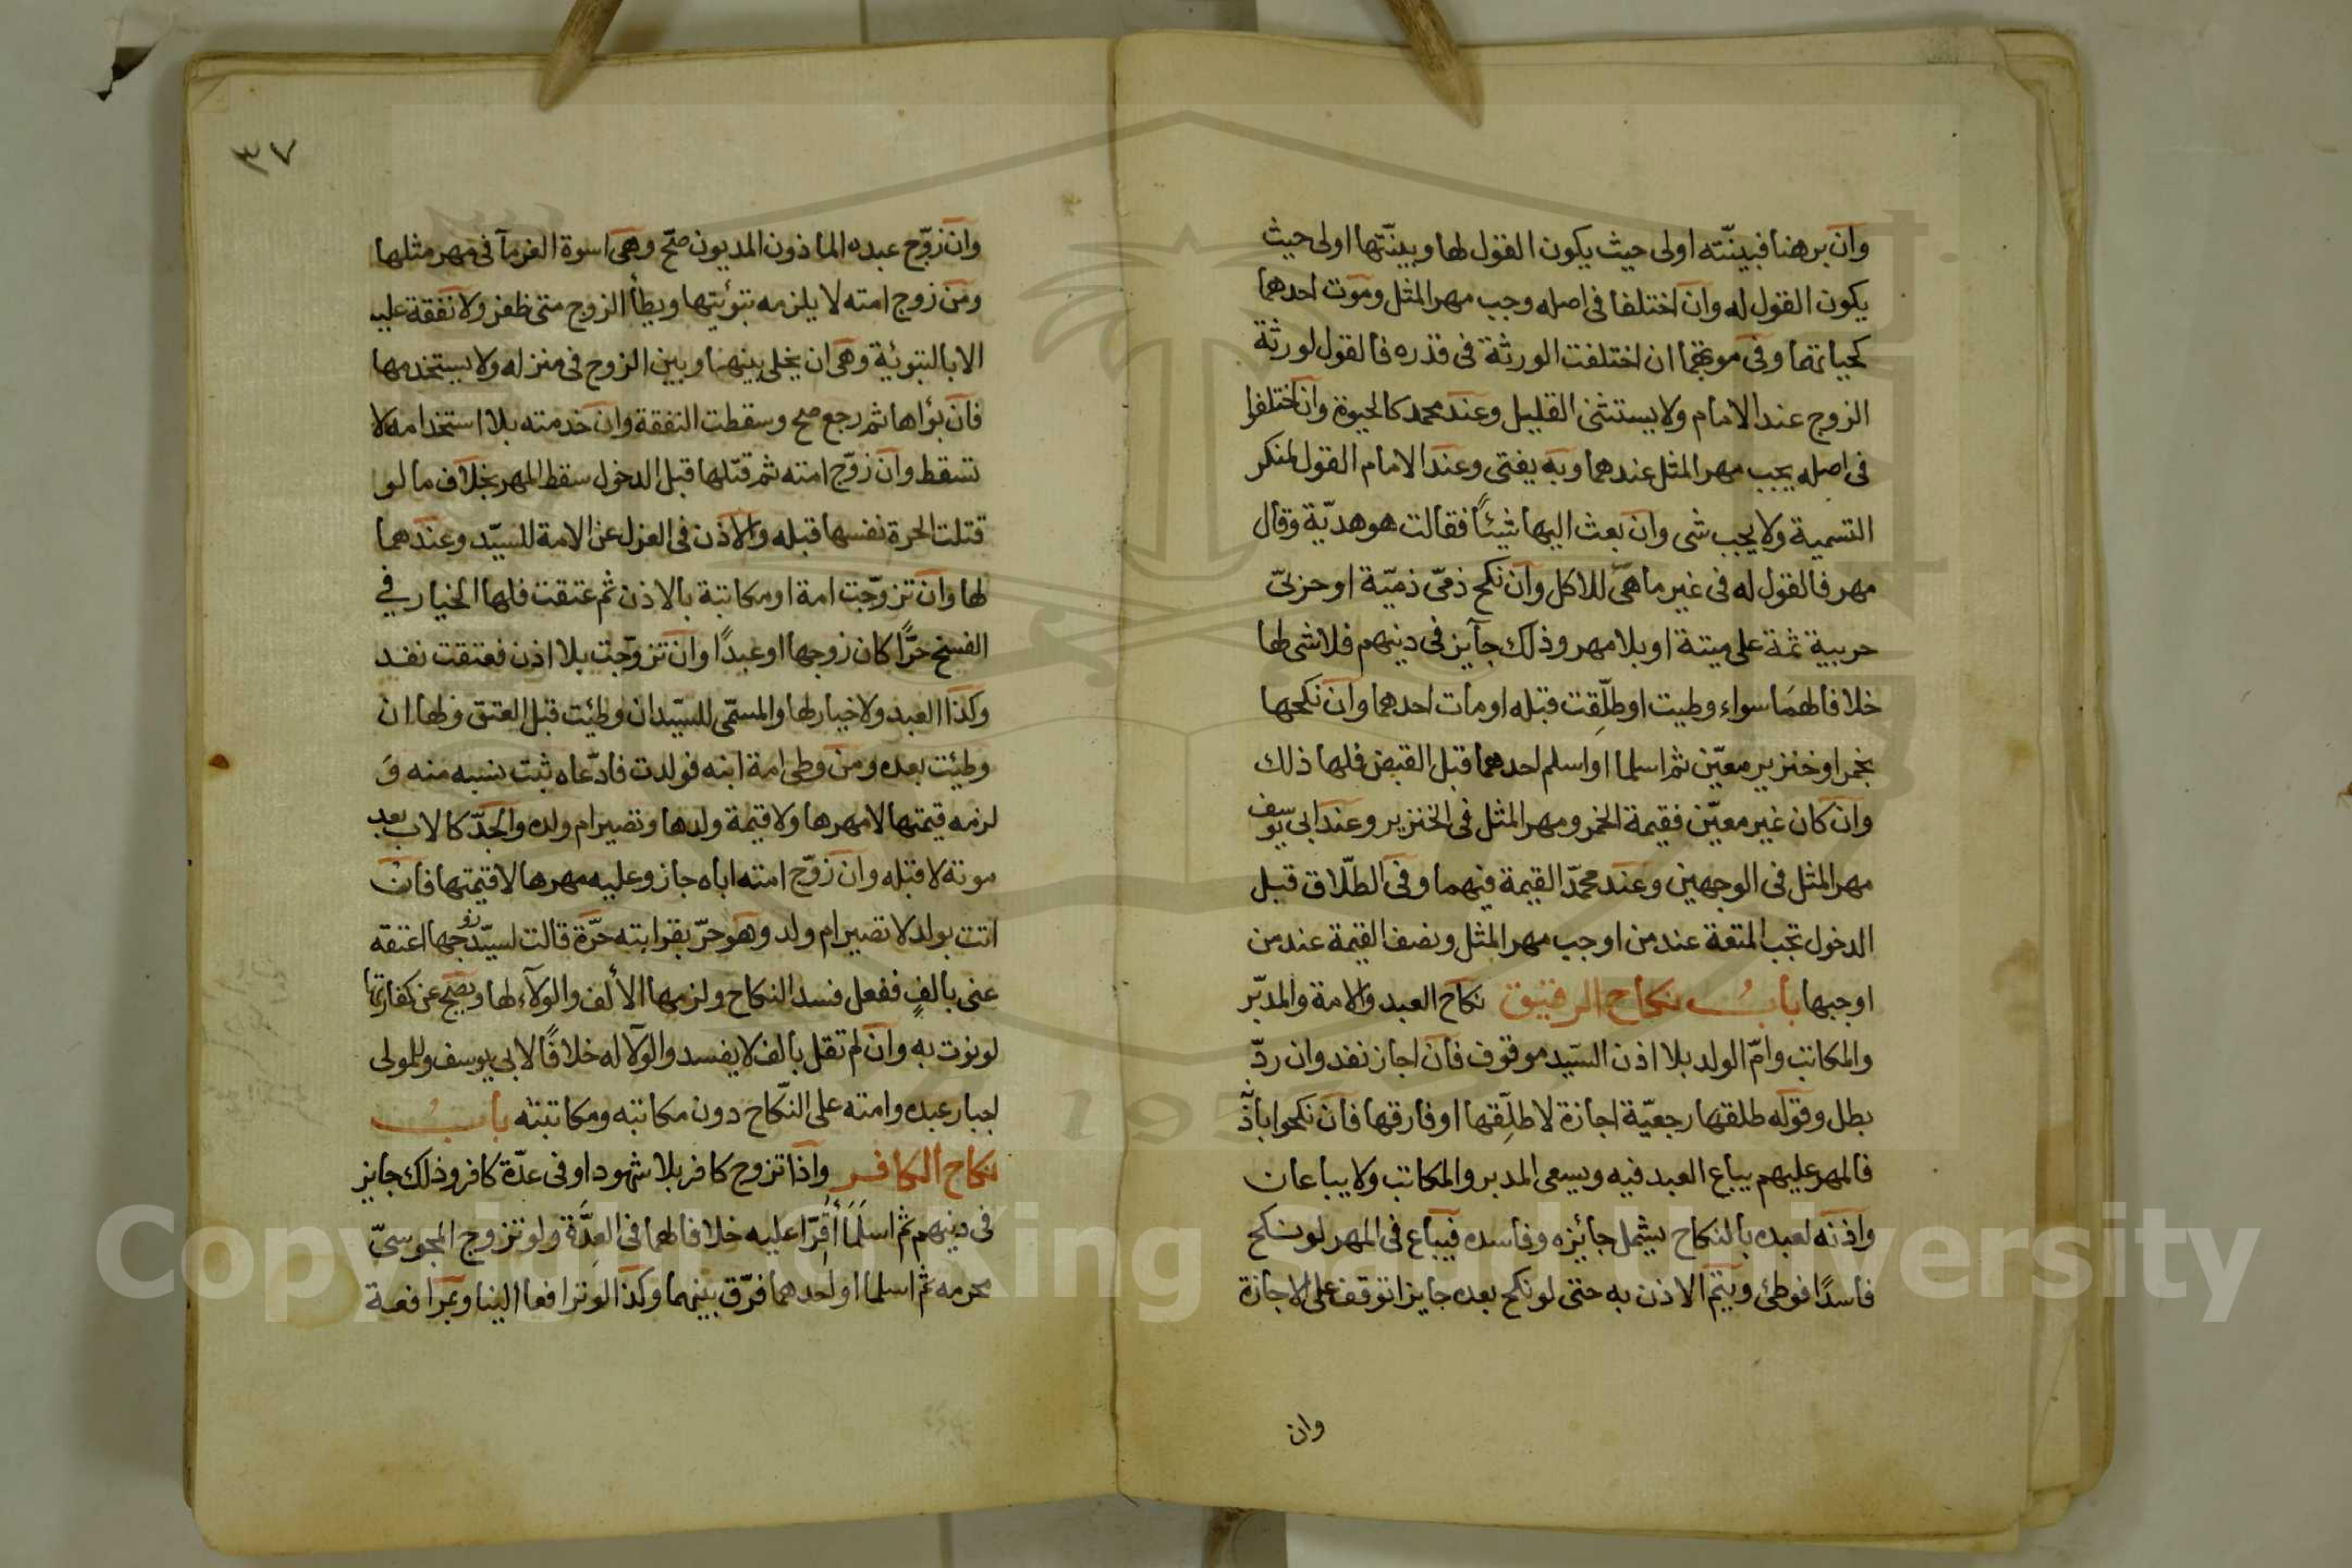 وان برهنا فبينّته اولى حيث يكون القول لها وبينّتها اولى حيث
يكون القول له وان اختلفا فى اصله وجب مهر المثل وموت احدهما
كحياتهما وفى موتهما ان اختلفت الورثة فى قدره فالقول لورثة
الزوج عند الامام ولا يستثنى القليل وعند محمد كالحيوة وان اختلفوا
فى اصله يجب مهر المثل عندهما وبه يفتى وعند الامام القول لمنكر
التسمية ولا يجب شى وان بعث اليها شيئًا فقالت هو هديّة وقال
مهر فالقول له فى غير ما هيّئ للاكل وان نكح ذمّى ذميّة او حربىّ
حربية ثمة على ميتة او بلا مهر وذلك جآيز فى دينهم فلا شى لها
خلافا لهمَا سواء وطيت او طلّقت قبله او مات احدهما وان نكحها
بخمر او خنزير معيّن ثم اسلما او اسلم احدهما قبل القبض فلها ذلك
وان كان غير معيّن فقيمة الخمر ومهر المثل فى الخنزير وعند ابى يوسف
مهر المثل فى الوجهين وعند محمّد القيمة فيهما وفى الطلّاق قبل
الدخول تجب المتعة عند من اوجب مهر المثل ونصف القيمة عند من
اوجبها بابُ نكاح الرقيق نكاح العبد والامة والمدبّر
والمكاتب وامّ الولد بلا اذن السّيد موقوف فان اجاز نفد وان ردّ
بطل وقوله طلقها رجعيّة اجازة لا طلّقها او فارقها فان نكحوا باذن
فالمهر عليهم يباع العبد فيه ويسعى المدبر والمكاتب ولا يباعان
واذنه لعبده بالنكاح يشمل جائيزه وفاسده فيباع فى المهر لو نكح
فاسدًا فوطئ ويتمّ الاذن به حتى لو نكح بعده جايزا توقف على الاجازة
وان
٣٧
وان زوّج عبده الماذون المديون صحّ وهى اسوة الغرمآ فى مهر مثلها
ومن زوج امته لا يلزمه تبوئيتها ويطأ الزوج متى ظفر ولا نفقة عليه
الا بالتبوئية وهى ان يخلى بينهنا وبين الزوج فى منزله ولا يستخدمها
فان بؤاها ثم رجع صح وسقطت النفقة وان خدمته بلا استخدامه لا
تسقط وان زوّج امته ثم قتلها قبل الدخول سقط المهر بخلاف ما لو
قتلت الحرة نفسها قبله والاذن فى العزل عن الامة للسيّد وعندهما
لها وان تزوّجت امة او مكاتبة بالاذن ثم عتقت فلها الخيار في
الفسخ حرًّا كان زوجها او عبدًا وان تزوّجت بلا اذن فعتقت نفد
وكذا العبد ولا خيار لها والمسمّى للسيّد ان وطئيت قبل العتق ولها ان
وطيئت بعده ومن وطى امة ابنه فولدت فادّعاه ثبت نسبه منه وَ
لزمه قيمتها لا مهرها ولا قيمة ولدها وتصير ام ولده والجدّ كالاب بعد
موته لا قبله وان زوّج امته اباه جاز وعليه مهرها لا قيمتها فان
اتت بولد لا تصير ام ولد وهو حرّ بقرابته حرّة قالت لسيّد زوجها اعتقه
عنى بالفٍ ففعل فسد النكاح ولزمها الألف والولآء لها ويصح عن كفارتها
لو نوت به وان لم تقل بالف لا يفسد والولآ له خلافًا لابى يوسف وللمولى
اجبار عبده وامته على النّكاح دون مكاتبه ومكاتبته بابُ
نكاح الكافر واذا تزوج كافر بلا شهود او فى عدّة كافر وذلك جايز
فى دينهم ثم اسلَمَا أُقِرّا عليه خلافا لهما فى العِدَّة ولو تزوج المجوسىّ
محرمه ثم اسلما او احدهما فرّق بينهما وكذا لو ترافعا الينا وبمرافعة
Copyright © King Saud University
195